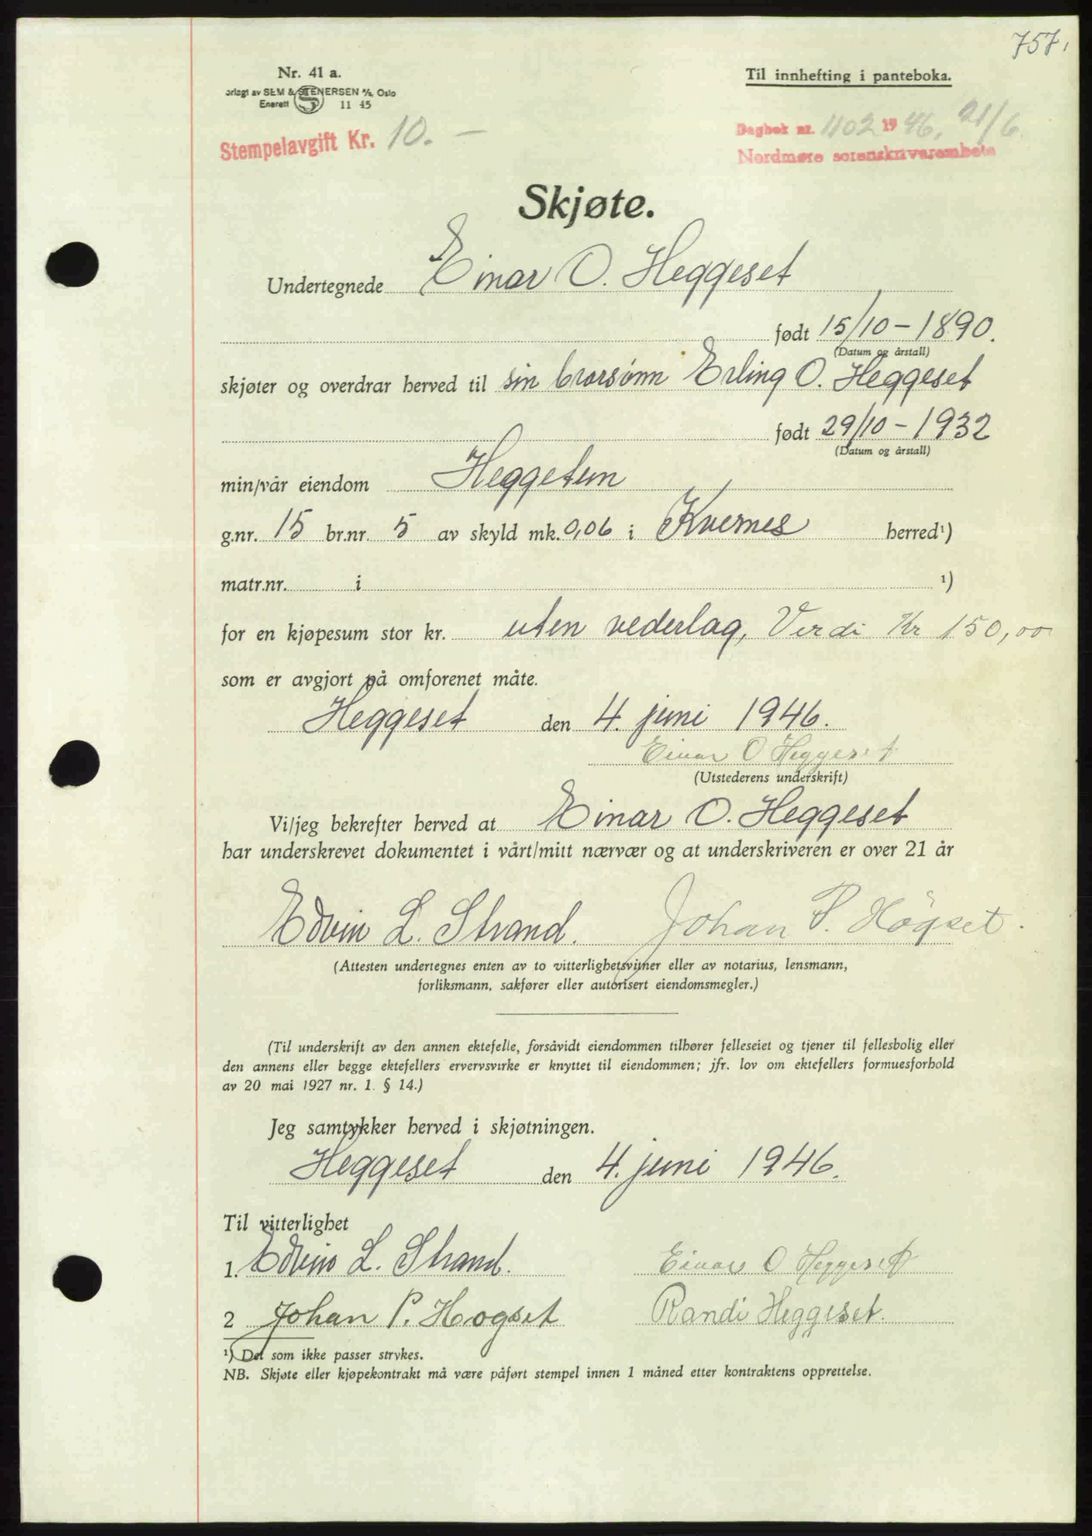 757.
Nr. 41 a.
Til innhefting i panteboka.
orlagt av SEM & STENERSEN A/S, Oslo
Enerett S 11 45
Stempelavgift Kr. 10.-
Dagbok nr. 1102 1946, 21/6
Nordmøre sorenskrivarembete
Skjøte.
Undertegnede Einar O. Heggeset
født 15/10-1890.
(Datum og årstall)
skjøter og overdrar herved til sin brorsønn Erling O. Heggeset
født 29/10-1932
(Datum og årstall)
min/vår eiendom Heggetun
g.nr. 15 br.nr. 5 av skyld mk. 0,06 i Kvernes herred¹)
matr.nr. i ¹)
for en kjøpesum stor kr. uten vederlag, Verdi Kr 150,00
som er avgjort på omforenet måte.
Heggeset den 4. juni 1946.
Einar O Heggeset
(Utstederens underskrift)
Vi/jeg bekrefter herved at Einar O. Heggeset
har underskrevet dokumentet i vårt/mitt nærvær og at underskriveren er over 21 år
Edvin L. Strand. Johan P. Högset.
(Attesten undertegnes enten av to vitterlighetsvitner eller av notarius, lensmann,
forliksmann, sakfører eller autorisert eiendomsmegler.)
(Til underskrift av den annen ektefelle, forsåvidt eiendommen tilhører felleseiet og tjener til fellesbolig eller
den annens eller begge ektefellers ervervsvirke er knyttet til eiendommen; jfr. lov om ektefellers formuesforhold
av 20 mai 1927 nr. 1. § 14.)
Jeg samtykker herved i skjøtningen.
Heggeset den 4. juni 1946.
Til vitterlighet
1. Edvin L. Strand. Einar O Heggeset
2 Johan P. Hogset Randi Heggeset.
¹) Det som ikke passer strykes.
NB. Skjøte eller kjøpekontrakt må være påført stempel innen 1 måned etter kontraktens opprettelse.